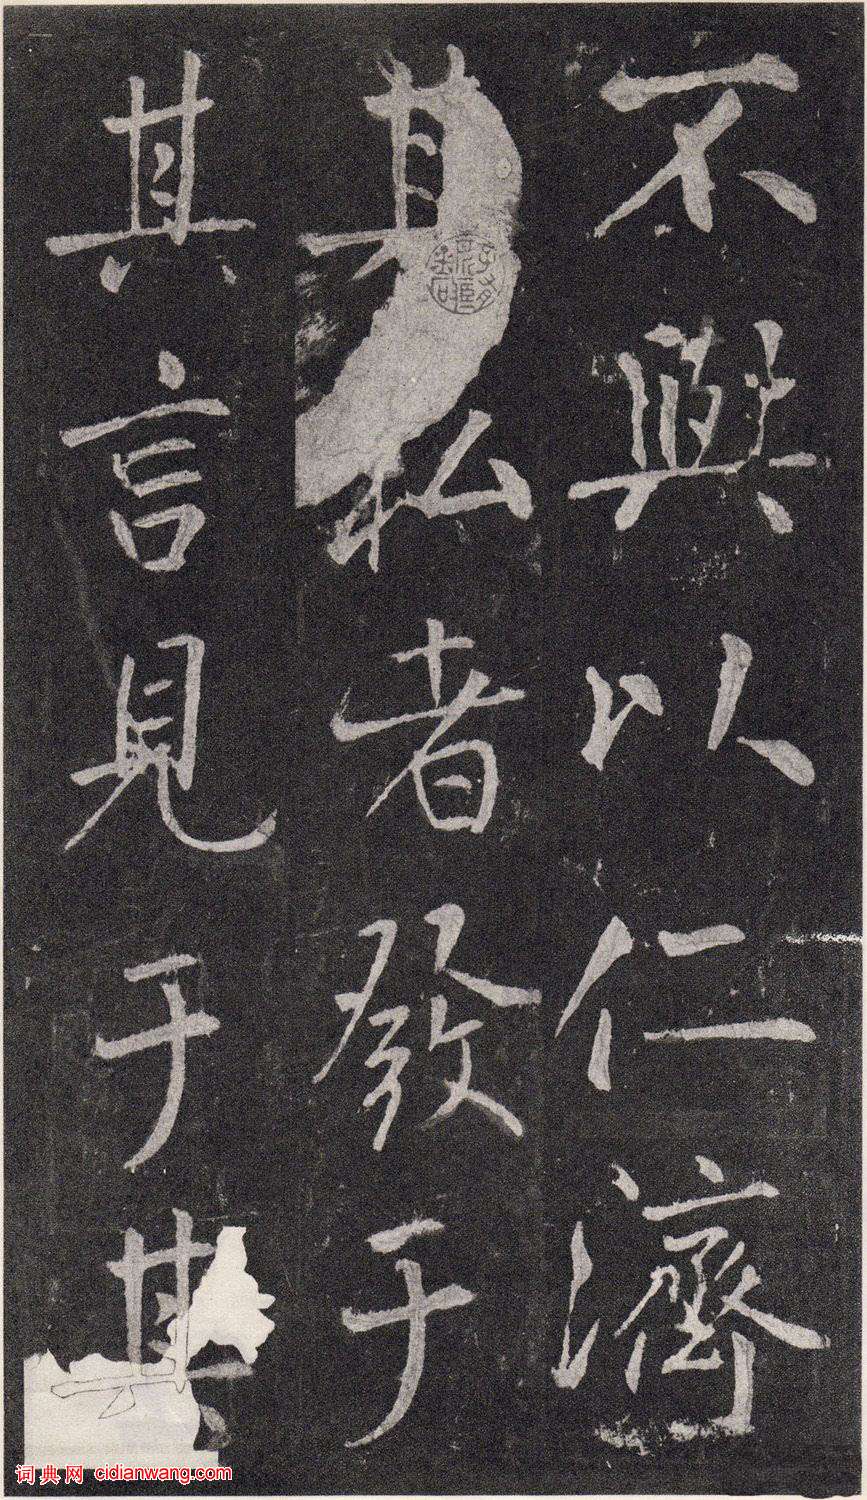 不與以仁濟
其私者發于
其言見于其
词典网 cidianwang.com